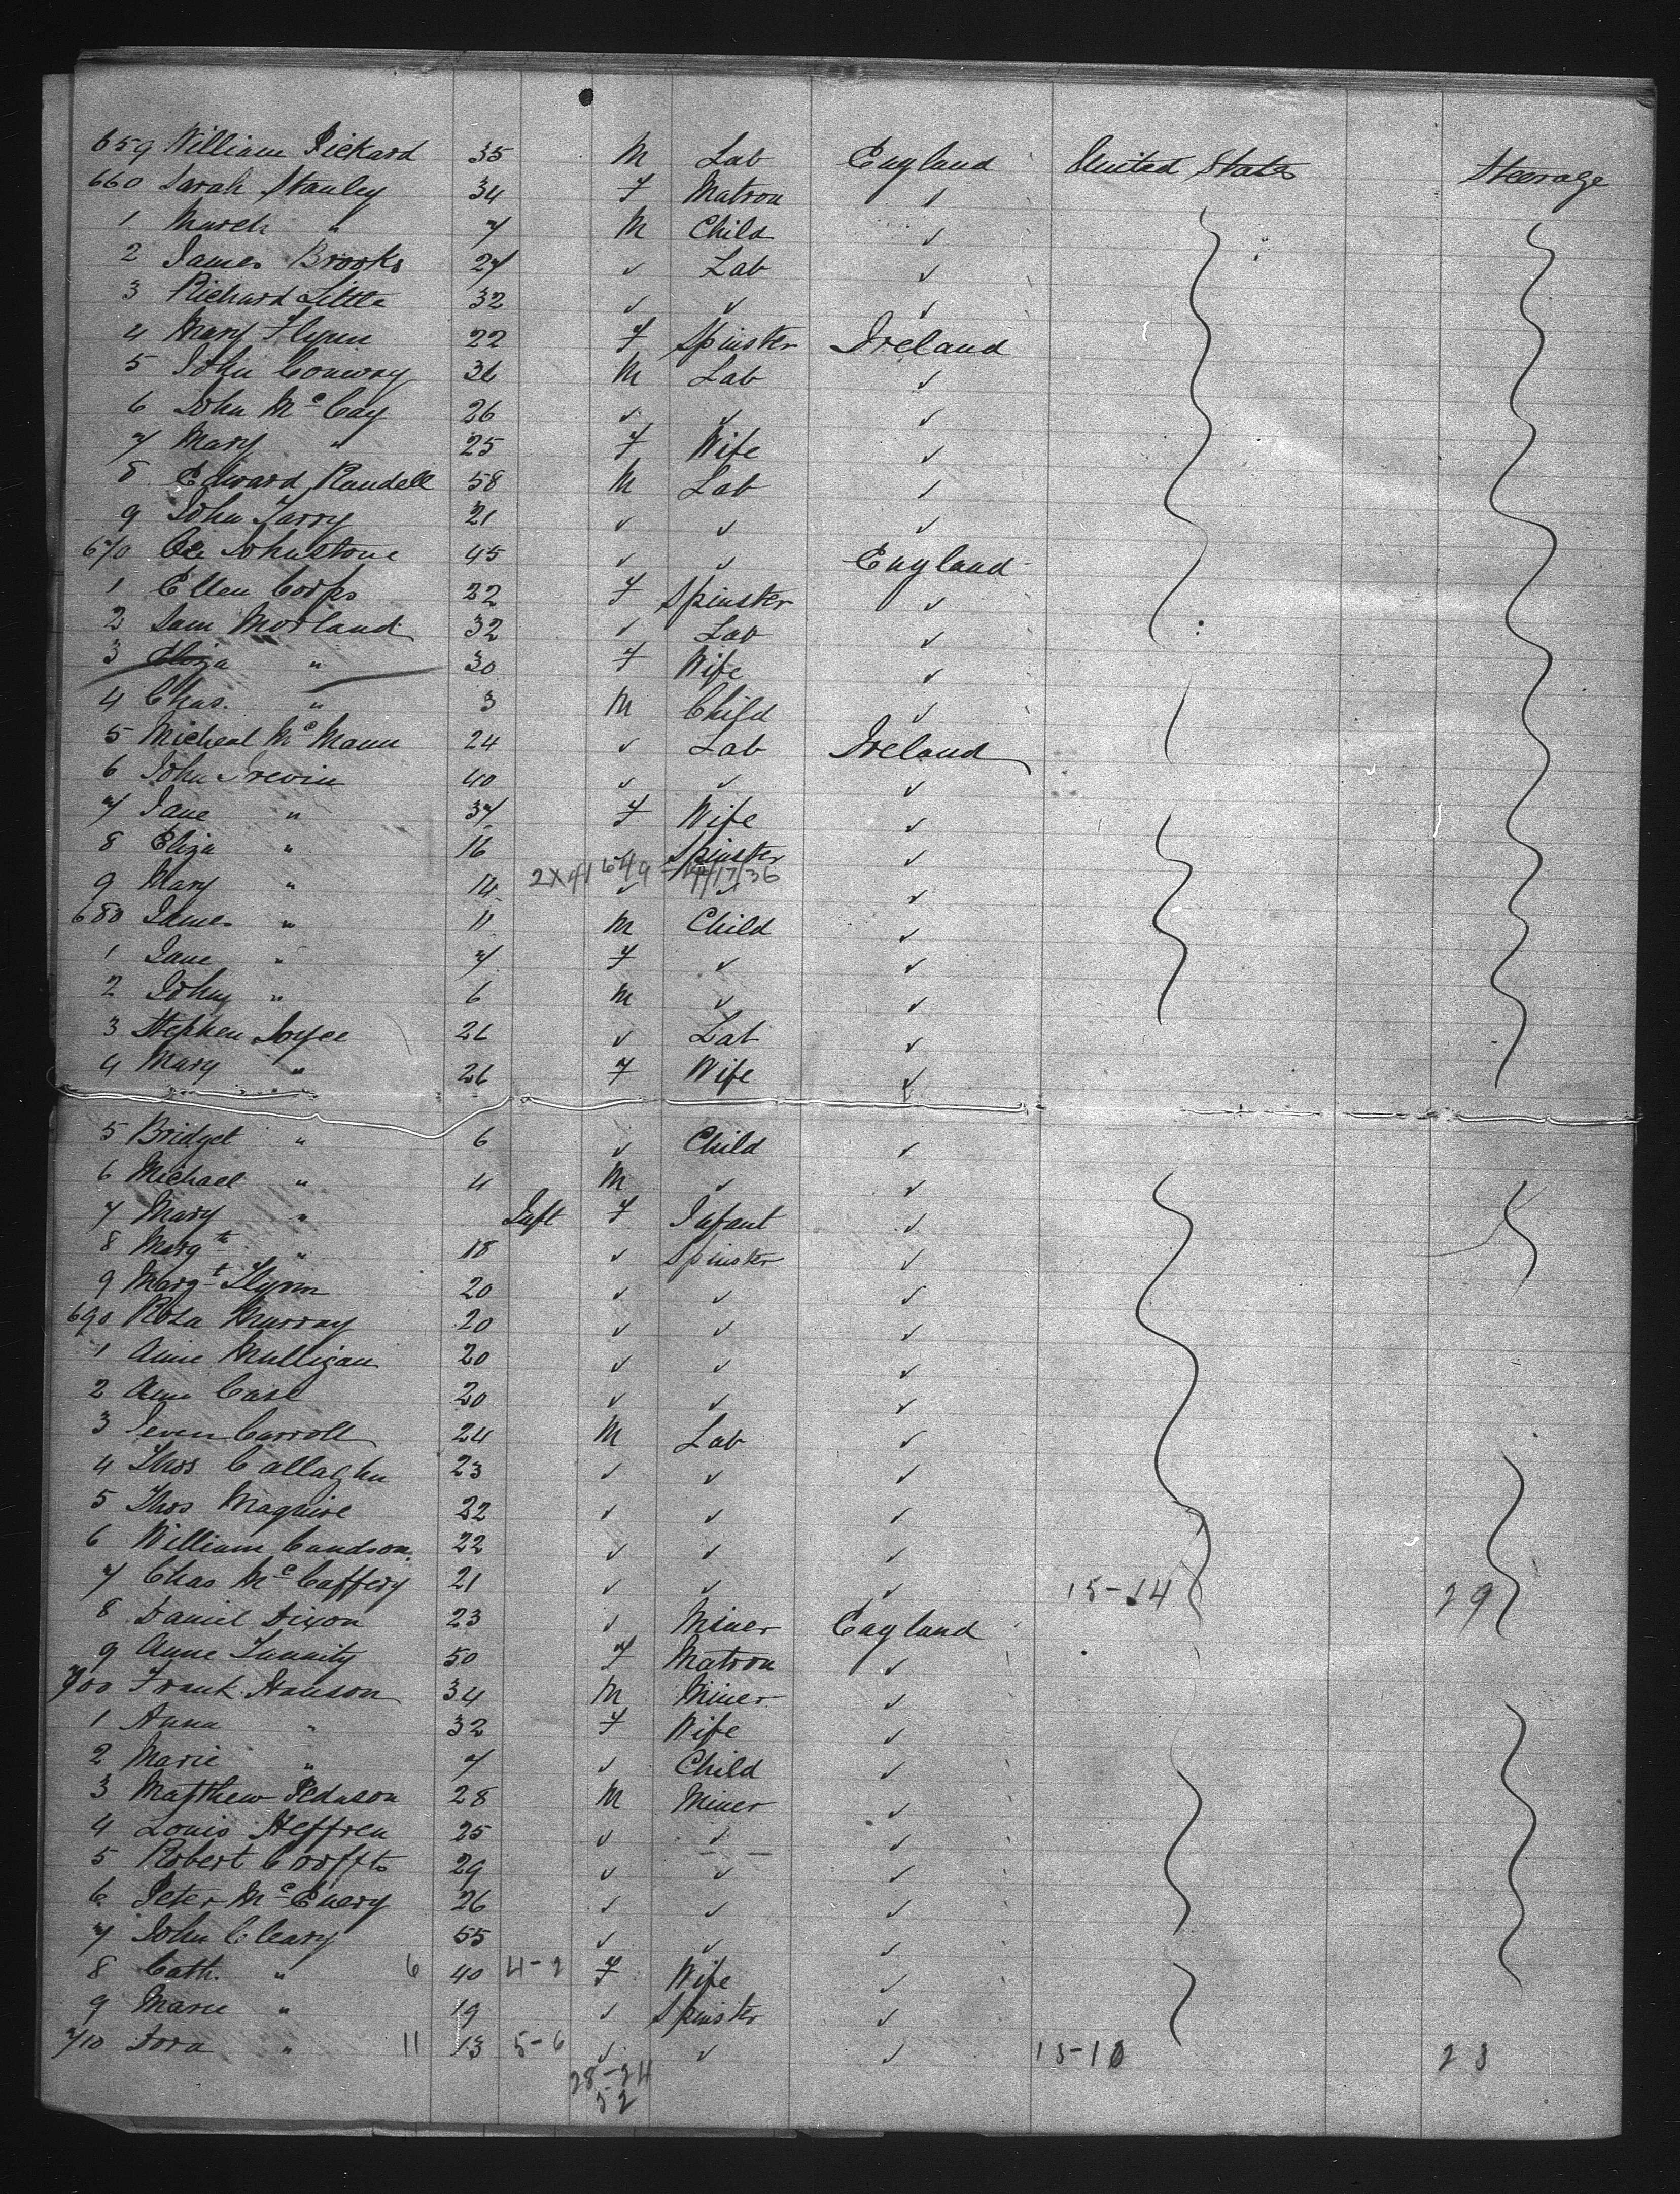 659 William Pickard 35 M Lab England United States Steerage
660 Sarah Stanley 34 F Matron ✓
1 March " 7 M Child ✓
2 James Brooks 27 ✓ Lab ✓
3 Richard Little 32 ✓ ✓ ✓
4 Mary Flynn 22 F Spinster Ireland
5 John Conway 36 M Lab ✓
6 John McCay 26 ✓ ✓ ✓
7 Mary " 25 F Wife ✓
8 Edward Randell 58 M Lab ✓
9 John Tarry 21 ✓ ✓ ✓
670 Johnstone 45 ✓ ✓ England
1 Ellen Corps 22 F Spinster ✓
2 Sam Morland 32 ✓ Lab ✓
3 Eliza " 30 F Wife ✓
4 Chas. " 3 M Child ✓
5 Micheal McMann 24 ✓ Lab Ireland
6 John Irevin 40 ✓ ✓ ✓
7 Jane " 37 F Wife ✓
8 Eliza " 16 ✓ Spinster ✓
2X71 649
9 Mary " 14 ✓ ✓ ✓
680 James " 11 M Child ✓
1 Jane " 7 F ✓ ✓
2 Johny " 6 M ✓ ✓
3 Stephen Joyce 26 ✓ Lab ✓
4 Mary " 26 F Wife ✓
5 Bridget " 6 ✓ Child ✓
6 Michael " 4 M ✓ ✓
7 Mary " Inft F Infant ✓
8 Margt " 18 ✓ Spinster ✓
9 Margt Flynn 20 ✓ ✓ ✓
690 Rosa Murray 20 ✓ ✓ ✓
1 Anne Mulligan 20 ✓ ✓ ✓
2 Ann Case 20 ✓ ✓ ✓
3 Carroll 24 M Lab ✓
4 Thos Callaghn 23 ✓ ✓ ✓
5 Thos Maguire 22 ✓ ✓ ✓
6 William Candson 22 ✓ ✓ ✓
7 Chas McCaffery 21 ✓ ✓ ✓ 15-14 29
8 Daniel Dixon 23 ✓ Miner England
9 Anne Tunnity 50 F Matron ✓
700 Frank Hanson 34 M Miner ✓
1 Anna " 32 F Wife ✓
2 Marie " 7 ✓ Child ✓
3 Matthew Pedason 28 M Miner ✓
4 Louis Heffren 25 ✓ ✓ ✓
5 Robert Crofts 29 ✓ ✓ ✓
6 Peter McEnery 26 ✓ ✓ ✓
7 John Cleary 55 ✓ ✓ ✓
8 Cath. " 6 40 4-2 F Wife ✓
9 Marie " 19 ✓ Spinster ✓
710 Dora " 11 13 5-6 ✓ ✓ ✓ 15-18 23
28-24
52